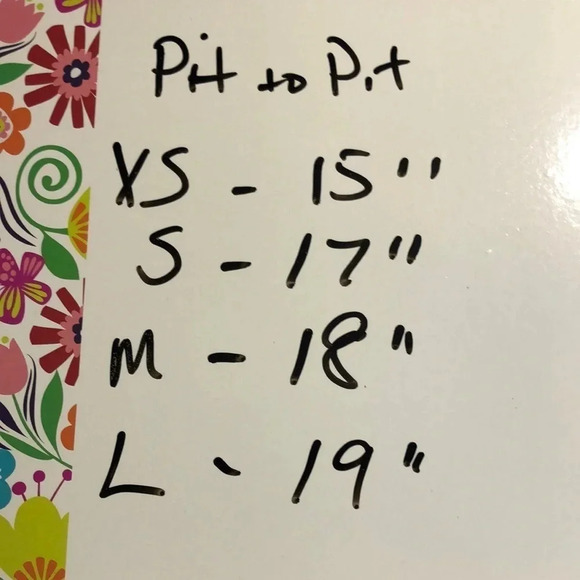 Pit to Pit
XS - 15"
S - 17"
M - 18"
L - 19"